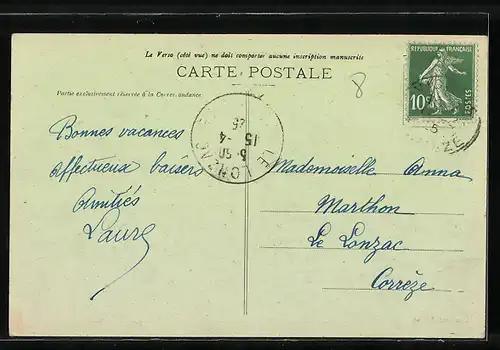 Le Verso (côté vue) ne doit comporter aucune inscription manuscrite
CARTE POSTALE
Partie exclusivement réservée à la Correspondance
8
REPUBLIQUE FRANÇAISE
10c
POSTES
LE LONZAC
5·50
15-4
25
Bonnes vacances
Affectueux baisers
Amitiés
Laure
Mademoiselle Anna
Marthon
Le Lonzac
Corrèze